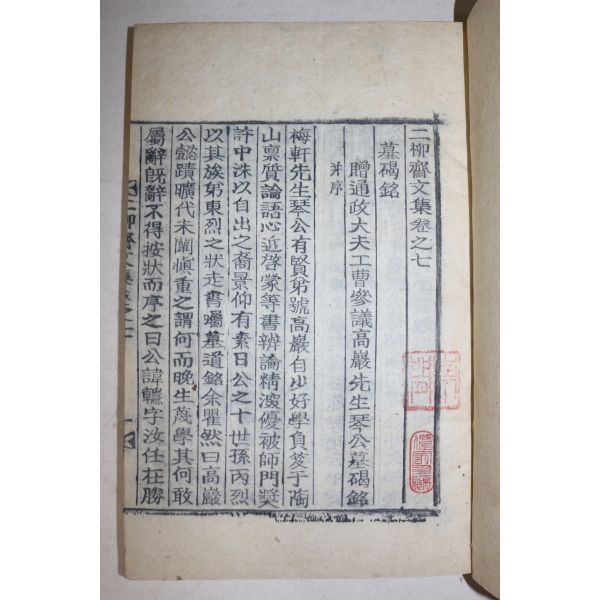 二柳齋文集卷之七
墓碣銘
贈通政大夫工曹參議高巖先生琴公墓碣銘
并序
梅軒先生琴公有賢弟號高巖自少好學負笈于陶
山稟質論語心近啓蒙等書辨論精深優被師門獎
許中洙以自出之裔景仰有素日公之十世孫丙烈
以其族弟東烈之狀走書囑墓道銘余瞿然曰高巖
公懿蹟曠代未闡愼重之謂何而晚生蔑學其何敢
屬辭旣辭不得按狀而序之曰公諱轙字汝任在勝
二柳齋文集卷之七